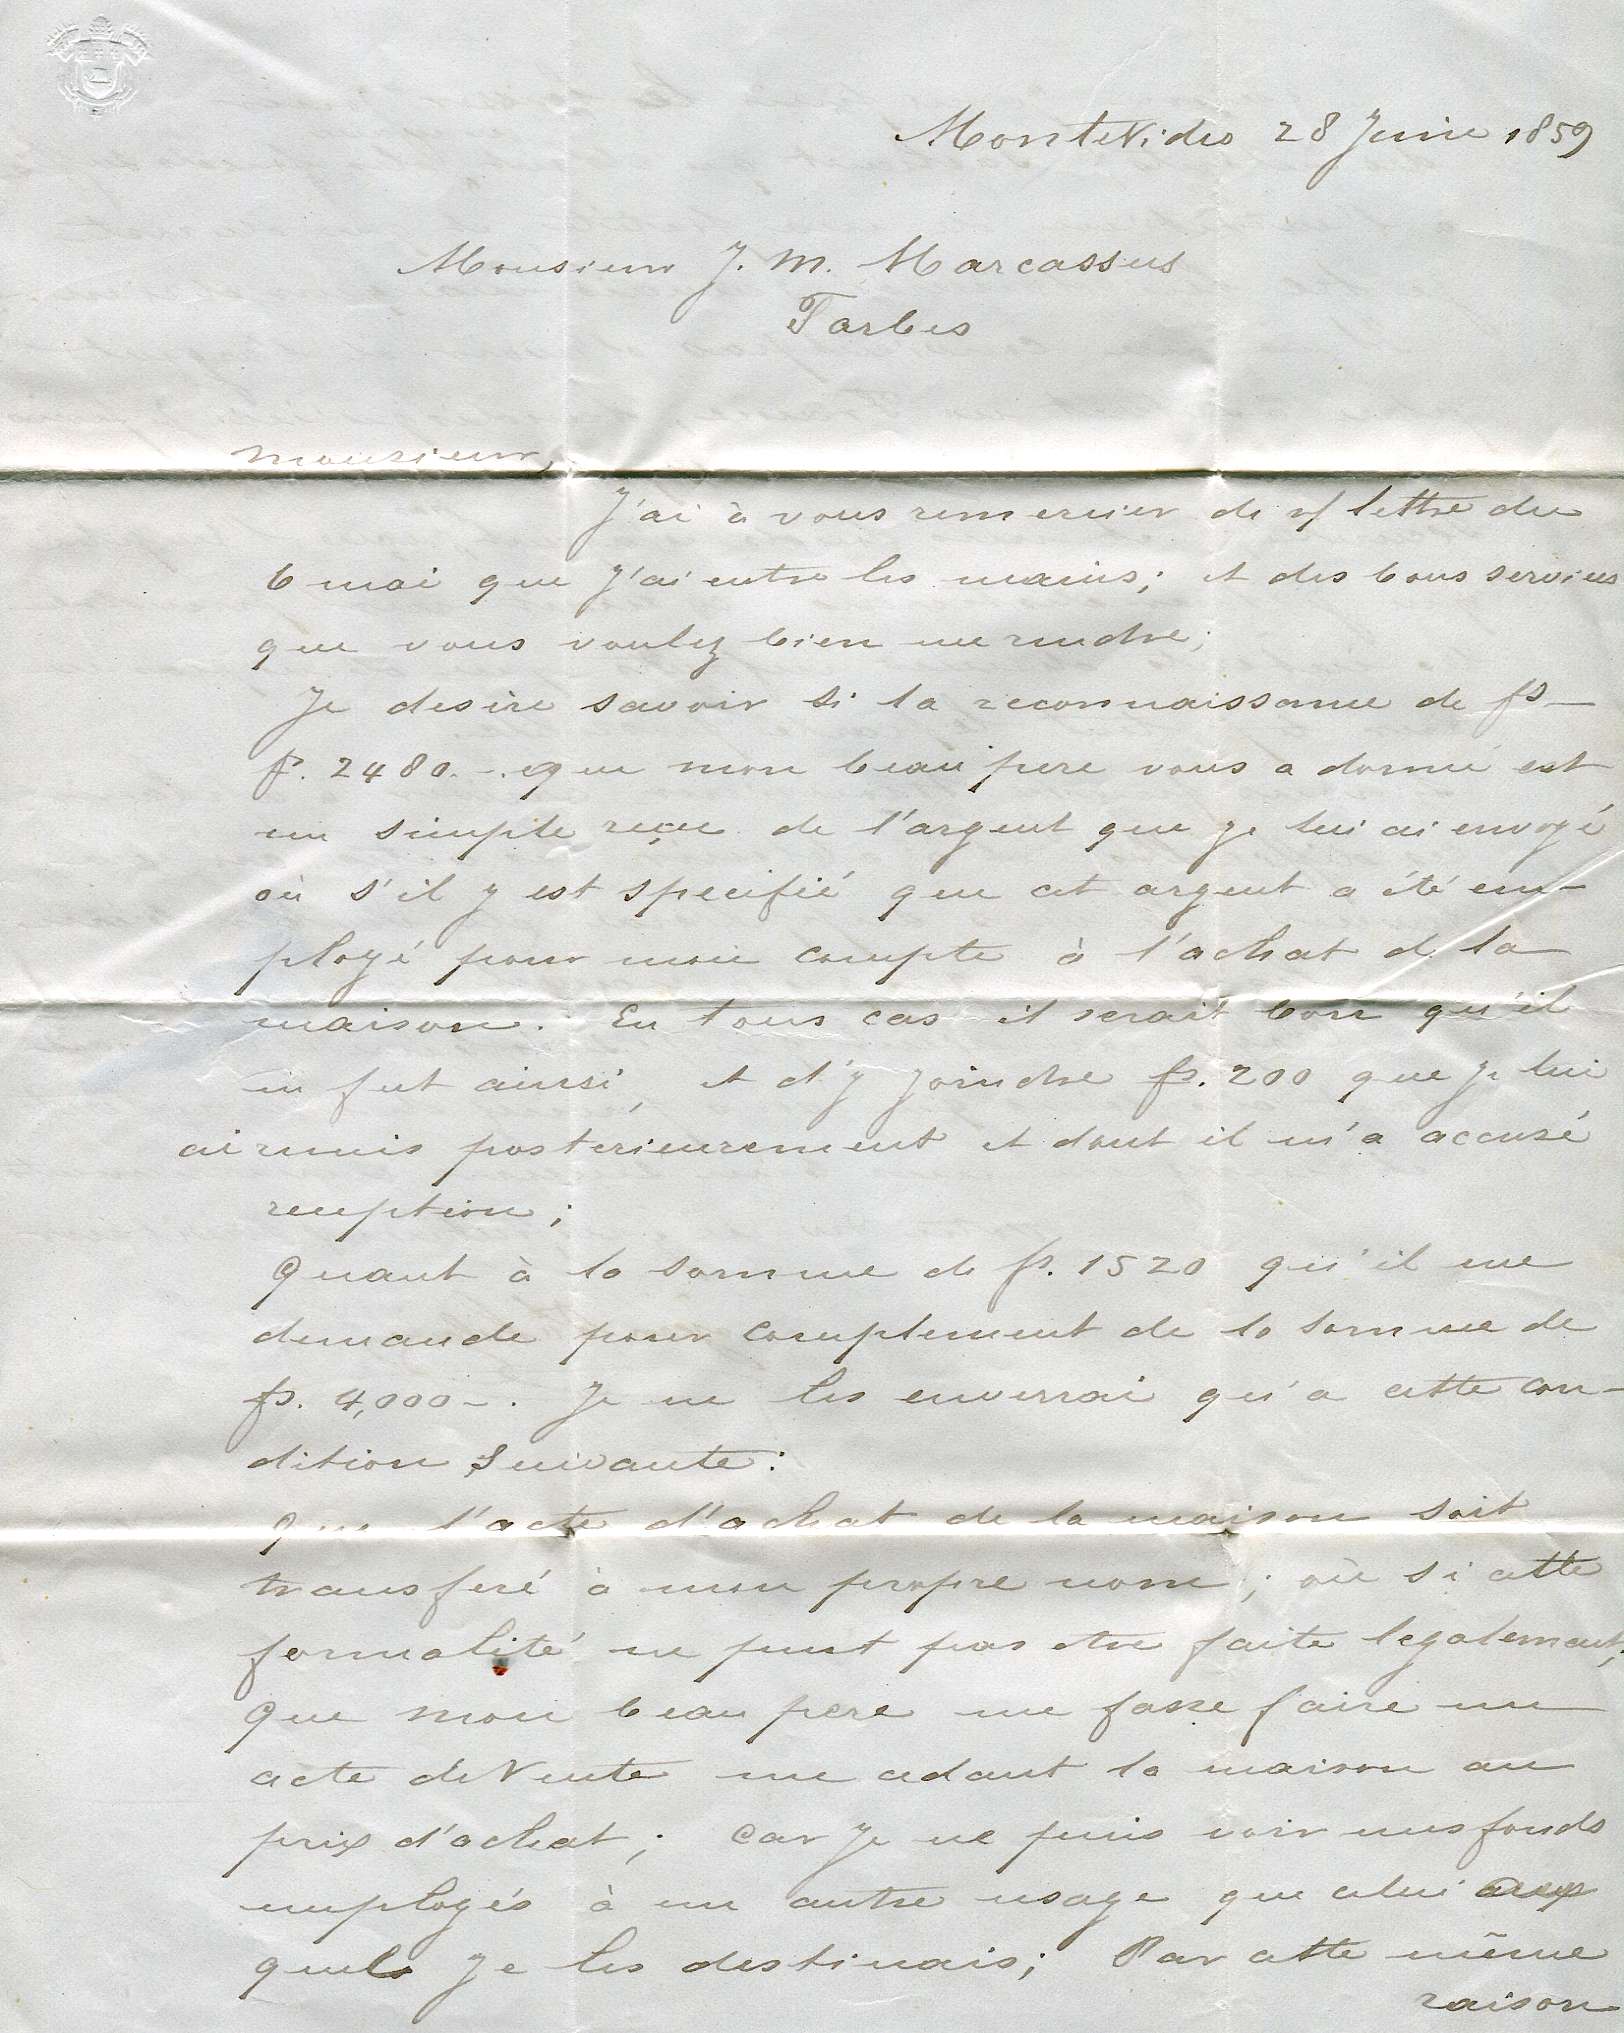 Montevideo 28 Juin 1859
Monsieur J. M. Marcassus
Tarbes
Monsieur,
J'ai à vous remercier de v/ lettre du
6 mai que J'ai entre les mains; et des bons services
que vous voulez bien me rendre;
Je desire savoir si la reconnaissance de fs —
fs. 2480.-. que mon beau pere vous a donné est
un simple reçu de l'argent que je lui ai envoyé
où s'il y est specifié que cet argent a été em-
ployé pour mon compte à l'achat de la
maison. En tous cas il serait bon qu'il
en fut ainsi, et d'y joindre fs. 200 que Je lui
ai remis posterieurement et dont il m'a accusé
reception;
Quant à la somme de fs. 1520 qu'il me
demande pour complement de la somme de
fs. 4,000 -. Je ne les enverrai qu'a cette con-
dition Suivante:
Que l'acte d'achat de la maison soit
transferé à mon propre nom; où si cette
formalité ne peut pas etre faite legalement;
Que mon beau pere me fasse faire un
acte de Vente me cedant la maison au
prix d'achat; Car Je ne puis voir mes fonds
employés à un autre usage que celui aux
quels Je les destinais; Par cette même
raison